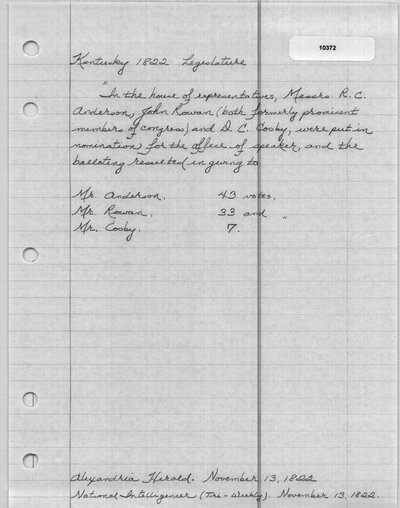 10372
Kentucky 1822 Legislature
"In the house of representatives, Messrs. R. C.
Anderson, John Rowan (both formerly prominent
members of congress) and D. C. Cosby, were put in
nomination for the office of speaker, and the
balloting resulted in giving to
Mr. Anderson, 43 votes,
Mr. Rowan, 33 and "
Mr. Cosby. 7.
Alexandria Herald. November 13, 1822
National Intelligencer (Tri-Weekly). November 13, 1822.